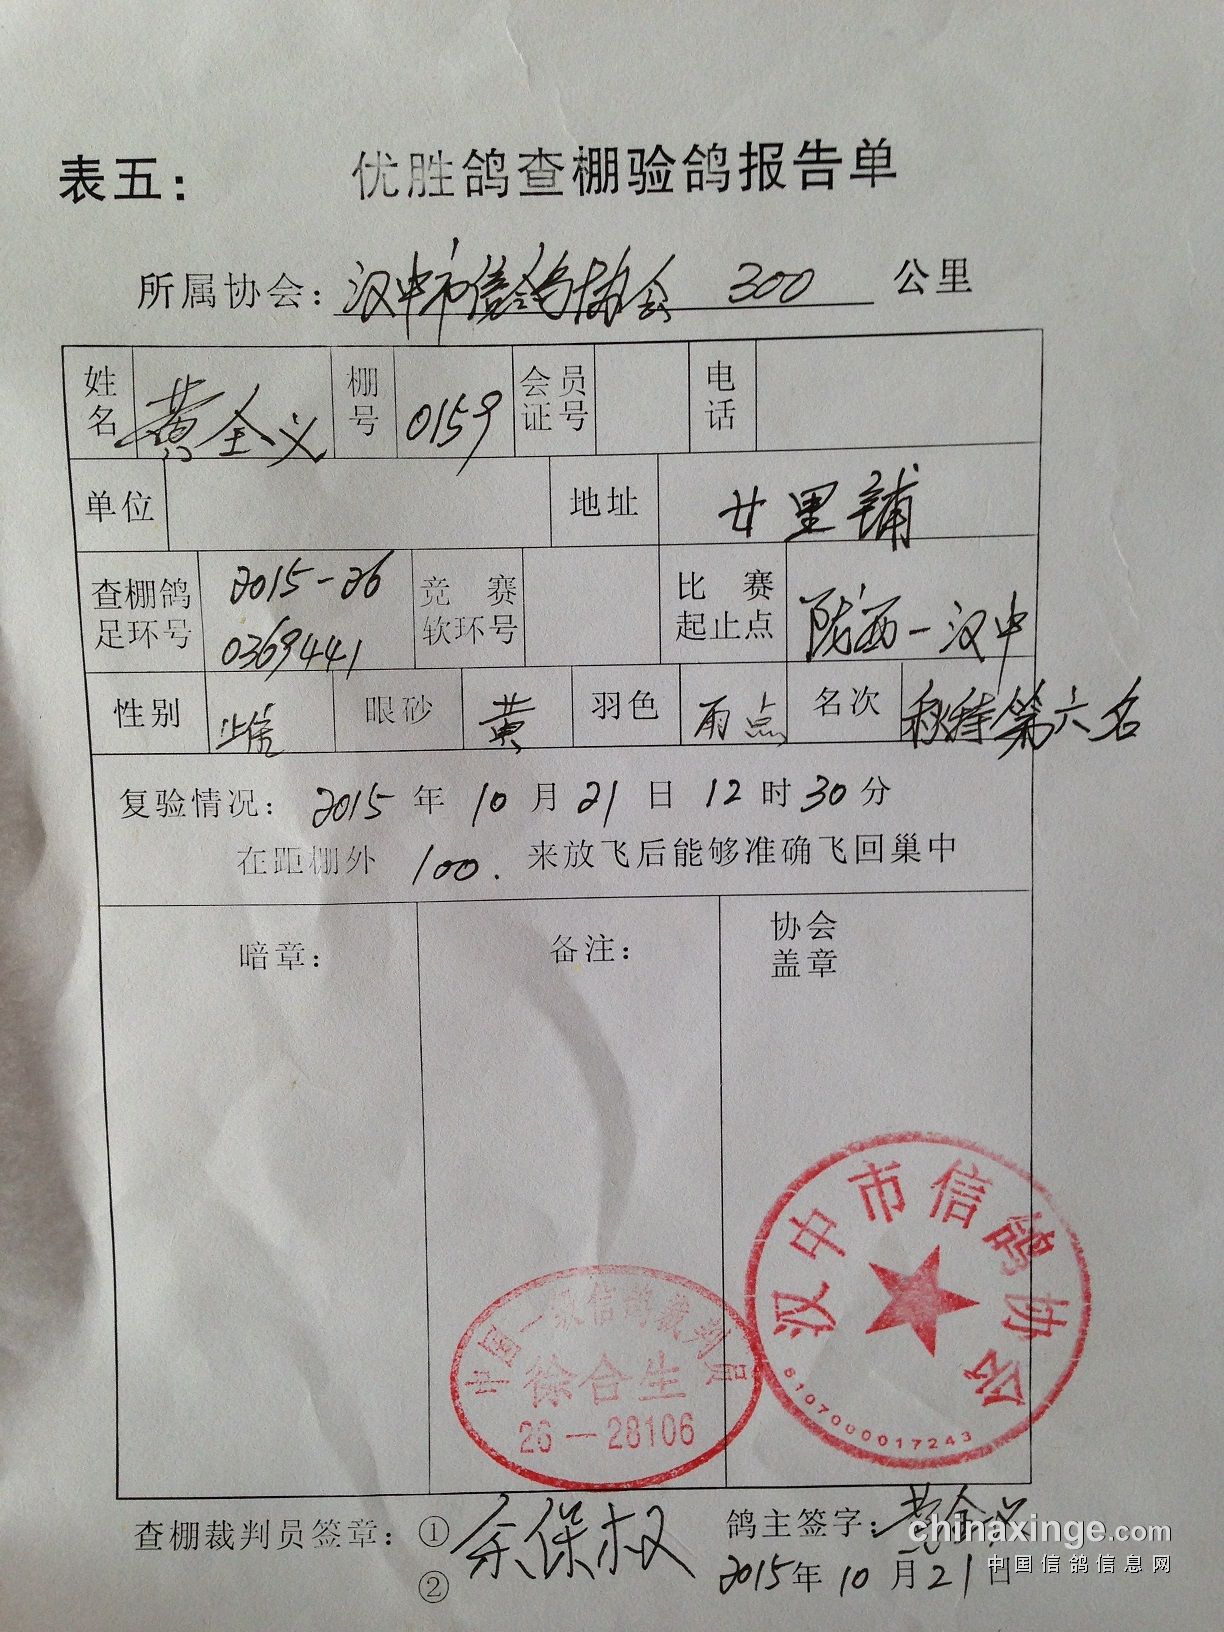 表五： 优胜鸽查棚验鸽报告单
所属协会：汉中市信鸽协会 300 公里
姓名 黄全义 棚号 0159 会员证号 电话
单位 地址 廿里铺
查棚鸽足环号 2015-26 0369441 竞赛软环号 比赛起止点 陇西-汉中
性别 雌 眼砂 黄 羽色 雨点 名次 秋特第六名
复验情况：2015年10月21日12时30分
在距棚外 100. 来放飞后能够准确飞回巢中
暗章： 备注： 协会盖章
汉中市信鸽协会
6107000017243
中国一级信鸽裁判员
徐合生
26—28106
查棚裁判员签章：① 余保权 鸽主签字：黄全义
② 2015年10月21日
chinaxinge.com
中国信鸽信息网